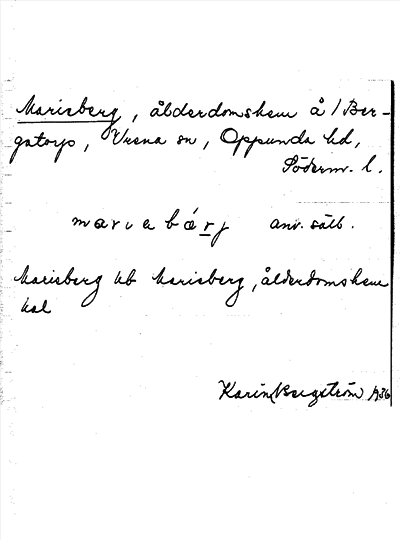 Marieberg, ålderdomshem å 1 Ber-
gatorp, Vrena sn, Oppunda hd,
Söderm. l.
mariebærj anv. sälb.
Marieberg kb Marieberg, ålderdomshem
hsl
Karin Bergström 1936